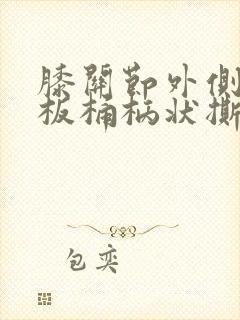 膝關節外側
板桶柄狀撕
包奕